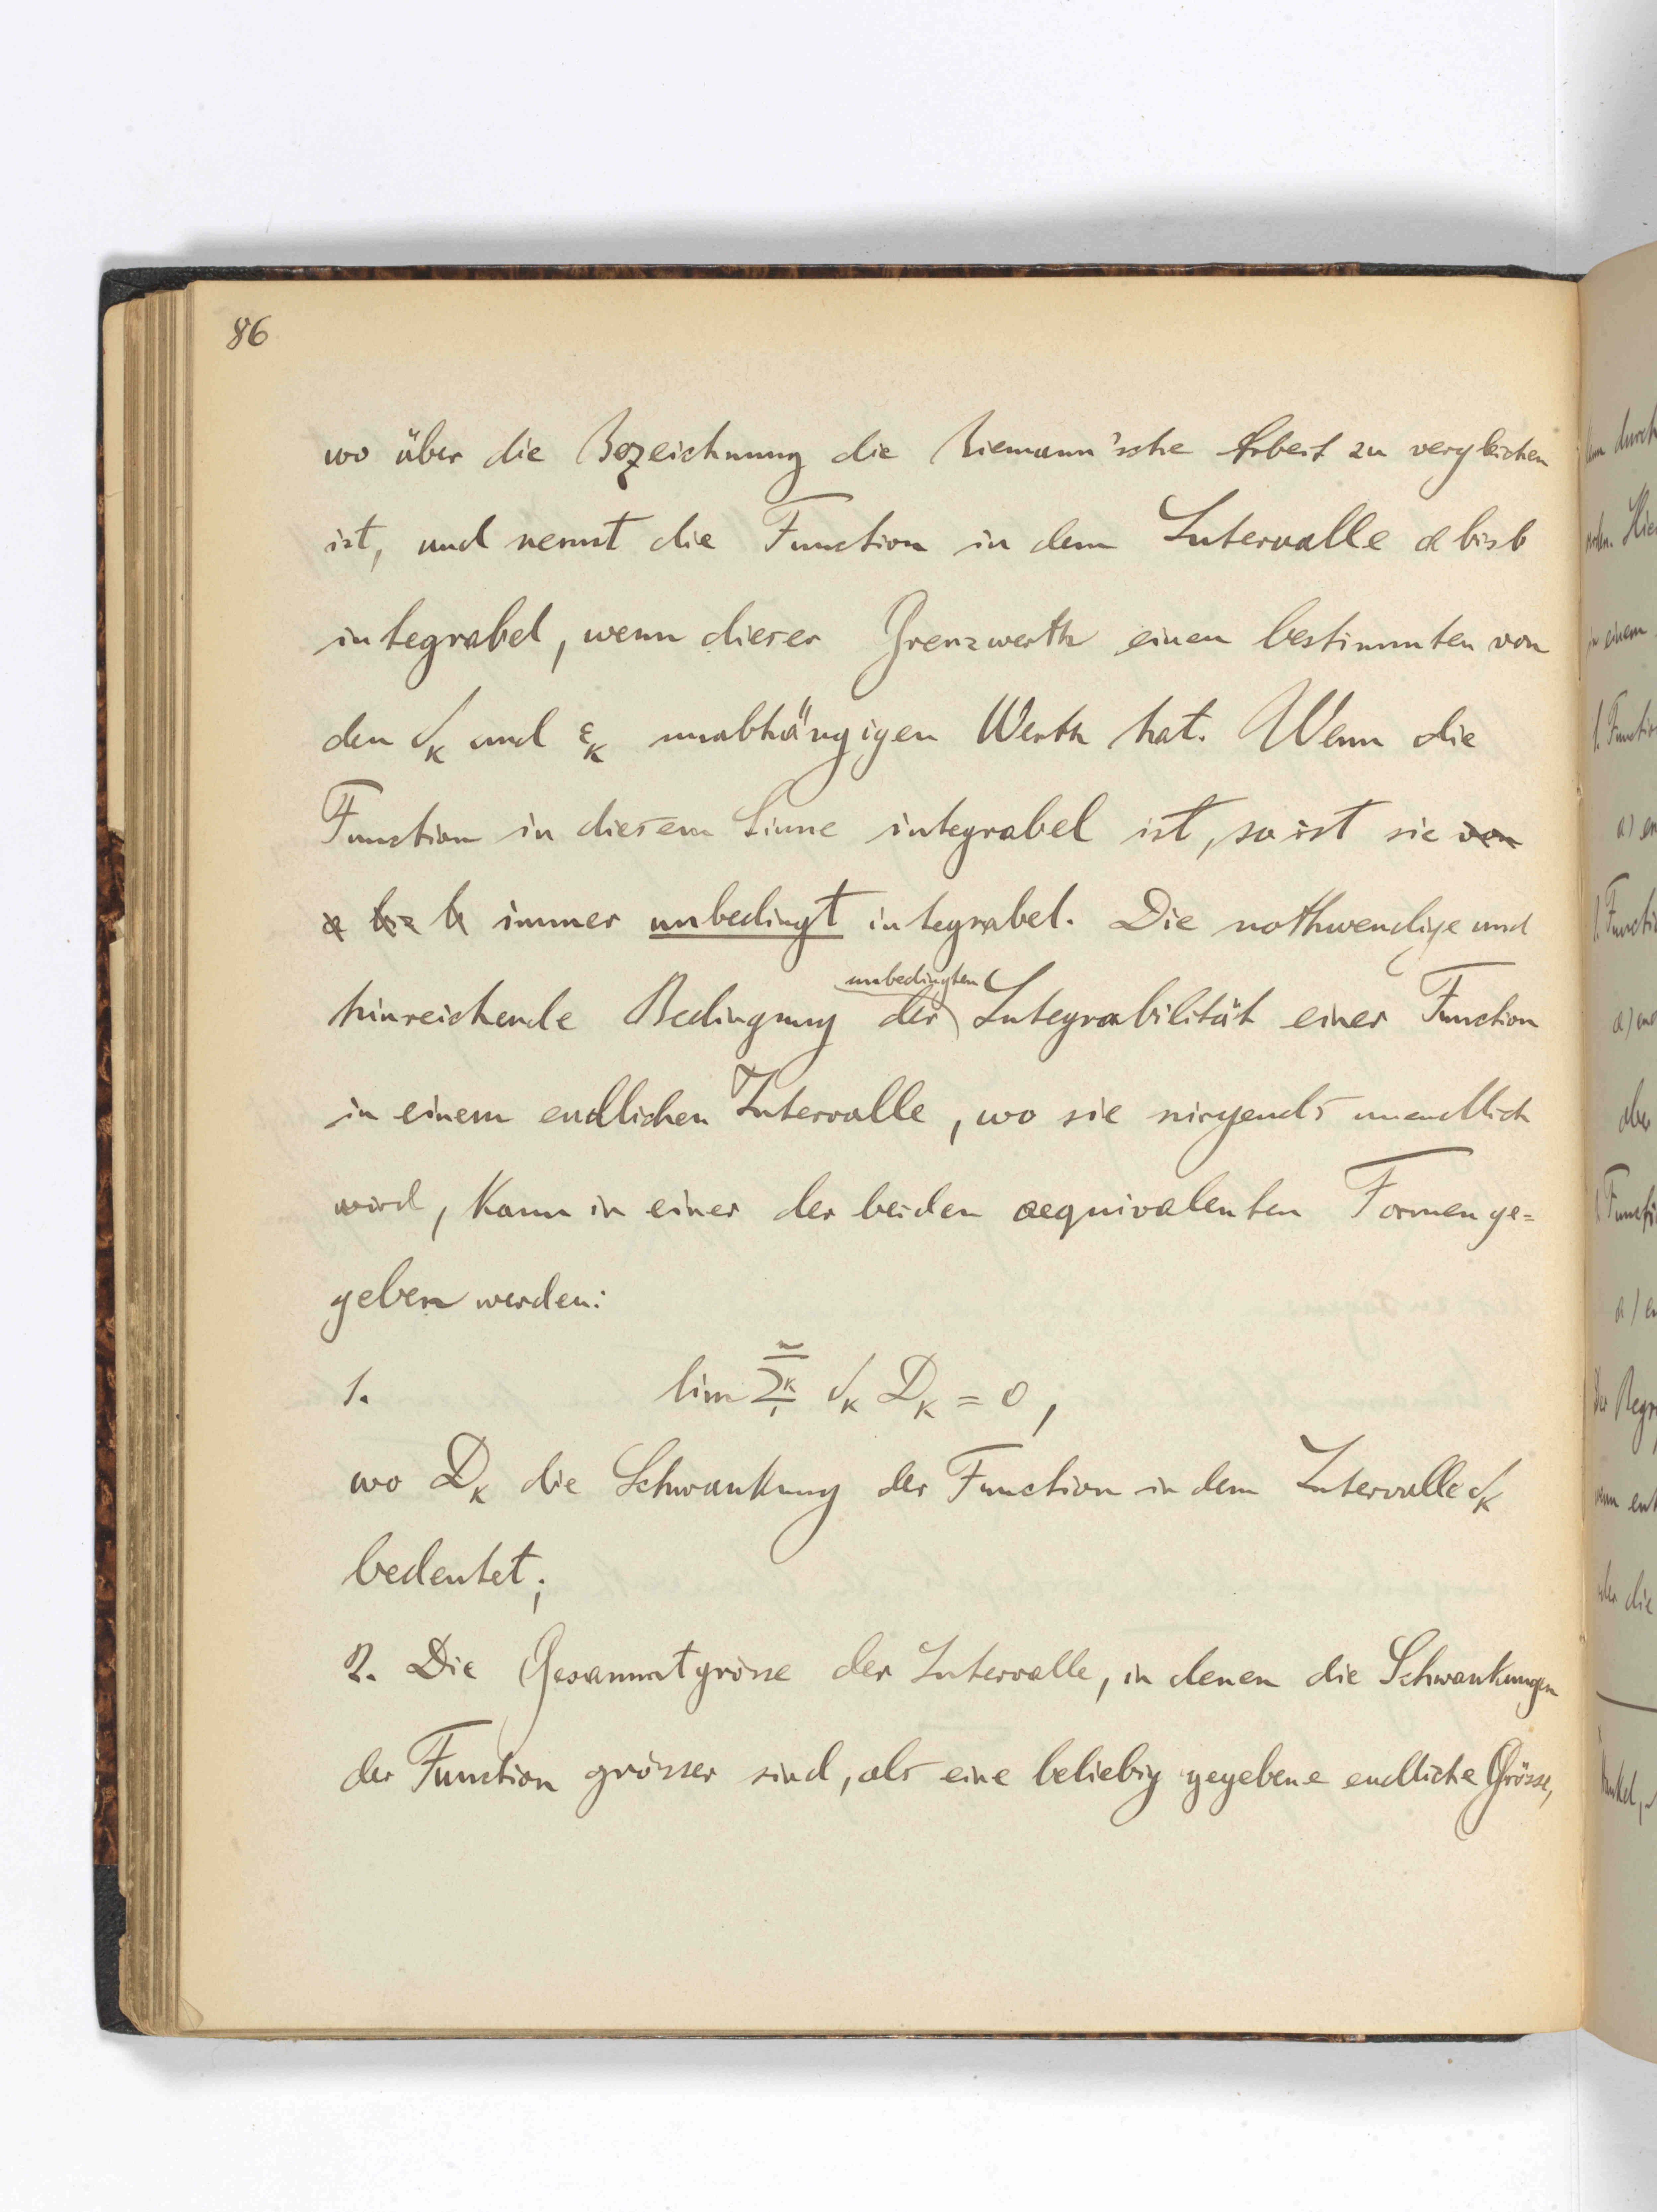 86
wo über die Bezeichnung die Riemann'sche Arbeit zu vergleichen
ist, und nennt die Function in dem Intervalle a bis b
integrabel, wenn dieser Grenzwerth einen bestimmten von
den δ_κ und ε_κ unabhängigen Werth hat. Wenn die
Function in diesem Sinne integrabel ist, so ist sie von
a bis b immer unbedingt integrabel. Die nothwendige und
unbedingten
hinreichende Bedingung der Integrabilität einer Function
in einem endlichen Intervalle, wo sie nirgends unendlich
wird, kann in einer der beiden aequivalenten Formen ge=
geben werden:
1. lim Σ_1^n κ δ_κ D_κ = 0,
wo D_κ die Schwankung der Function in dem Intervalle δ_κ
bedeutet;
2. Die Gesammtgrösse der Intervalle, in denen die Schwankungen
der Function grösser sind, als eine beliebig gegebene endliche Grösse,
durch
Hie
in einem
1. Functio
a) en
Functi
a)
aber
Functi
a) en
Der Regr
ent
oder die